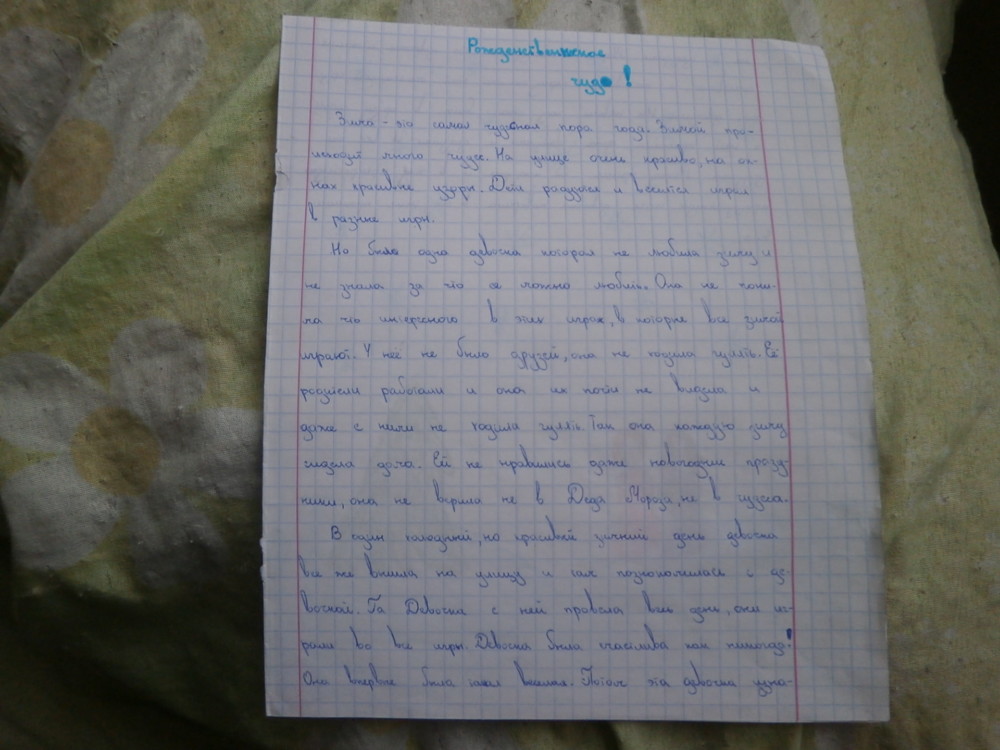 Рождественское
чудо!
Зима - это самая чудесная пора года. Зимой про-
исходит много чудес. На улице очень красиво, на ок-
нах красивые узоры. Дети радуются и веселятся играя
в разные игры.
Но была одна девочка которая не любила зиму и
не знала за что её можно любить. Она не пони-
ма что интересного в этих играх, в которые все зимой
играют. У неё не было друзей, она не ходила гулять. Её
родители работали и она их почти не видела и
даже с ними не ходила гулять. Так она каждую зиму
сидела дома. Ей не нравились даже новогодние празд-
ники, она не верила не в Деда Мороза, не в чудеса.
В один холодный, но красивый зимний день девочка
все же вышла на улицу и там познакомилась с де-
вочкой. Та Девочка с ней провела весь день, они иг-
рали во все игры. Девочка была счастлива как никогда!
Она впервые была такая веселая. Потом эта девочка узна-